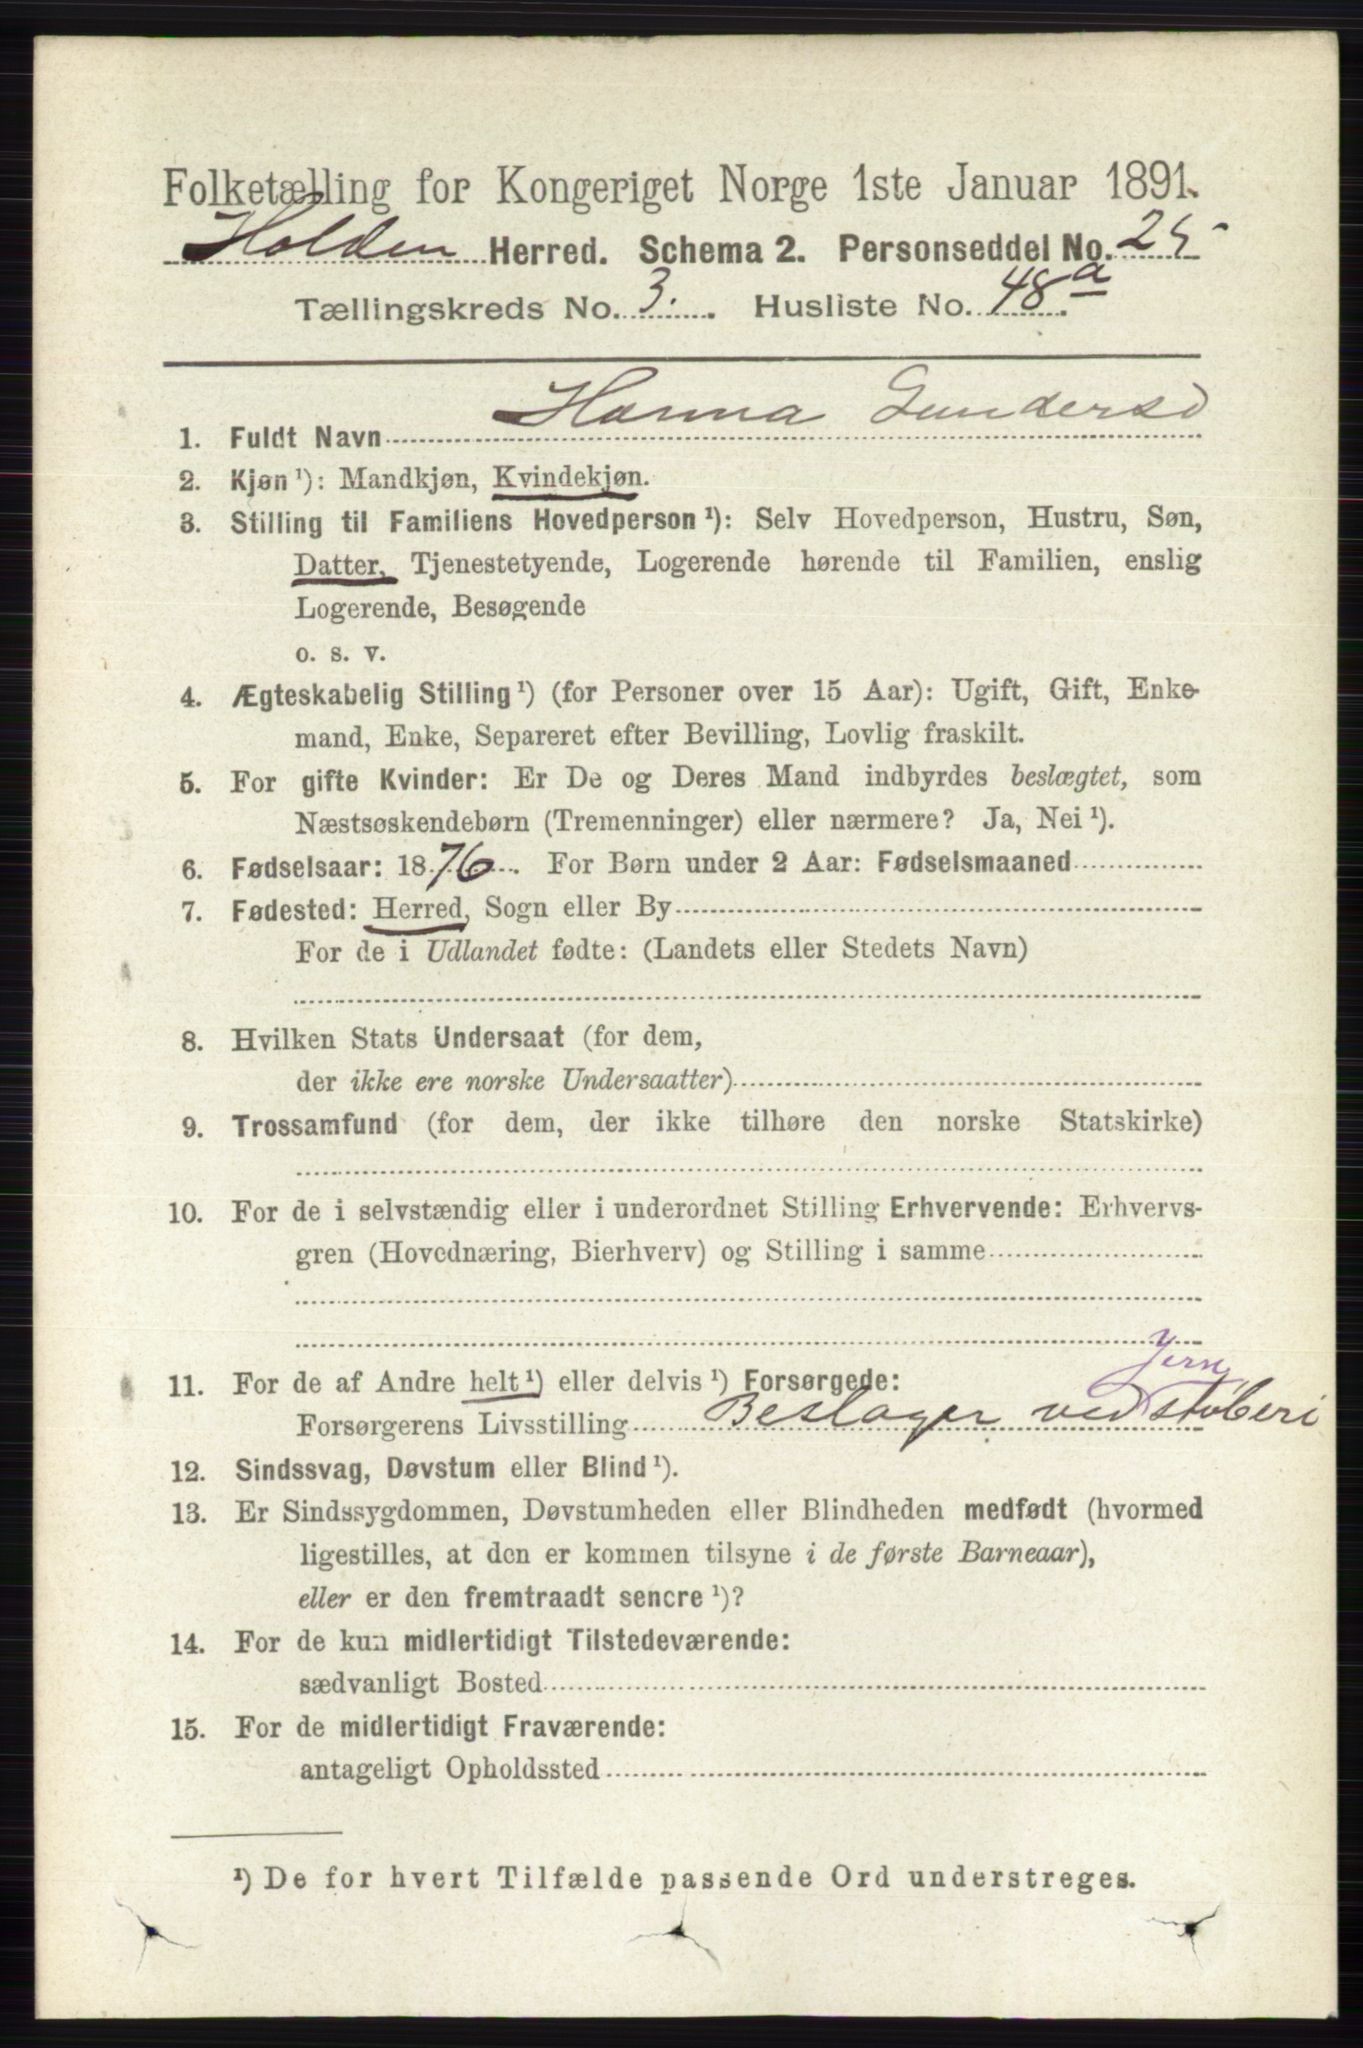 Folketælling for Kongeriget Norge 1ste Januar 1891.
Holden Herred. Schema 2. Personseddel No. 25
Tællingskreds No. 3. Husliste No. 48a
1. Fuldt Navn Hanna Gunders
2. Kjøn ¹): Mandkjøn, Kvindekjøn.
3. Stilling til Familiens Hovedperson ¹): Selv Hovedperson, Hustru, Søn,
Datter, Tjenestetyende, Logerende hørende til Familien, enslig
Logerende, Besøgende
o. s. v.
4. Ægteskabelig Stilling ¹) (for Personer over 15 Aar): Ugift, Gift, Enke-
mand, Enke, Separeret efter Bevilling, Lovlig fraskilt.
5. For gifte Kvinder: Er De og Deres Mand indbyrdes beslægtet, som
Næstsøskendebørn (Tremenninger) eller nærmere? Ja, Nei ¹).
6. Fødselsaar: 1876. For Børn under 2 Aar: Fødselsmaaned
7. Fødested: Herred, Sogn eller By
For de i Udlandet fødte: (Landets eller Stedets Navn)
8. Hvilken Stats Undersaat (for dem,
der ikke ere norske Undersaatter)
9. Trossamfund (for dem, der ikke tilhøre den norske Statskirke)
10. For de i selvstændig eller i underordnet Stilling Erhvervende: Erhvervs-
gren (Hovednæring, Bierhverv) og Stilling i samme
Jern
11. For de af Andre helt ¹) eller delvis ¹) Forsørgede:
Forsørgerens Livsstilling Beslager ved støberi
12. Sindssvag, Døvstum eller Blind ¹).
13. Er Sindssygdommen, Døvstumheden eller Blindheden medfødt (hvormed
ligestilles, at den er kommen tilsyne i de første Barneaar),
eller er den fremtraadt senere ¹)?
14. For de kun midlertidigt Tilstedeværende:
sædvanligt Bosted
15. For de midlertidigt Fraværende:
antageligt Opholdssted
¹) De for hvert Tilfælde passende Ord understreges.